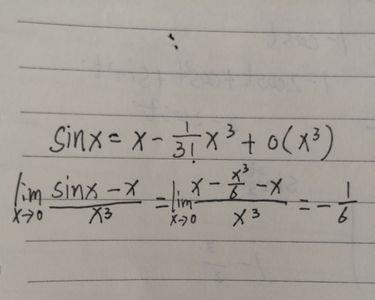 sinx = x - \frac{1}{3!}x^3 + o(x^3)
\lim_{x→0} \frac{sinx - x}{x^3} = \lim_{x→0} \frac{x - \frac{x^3}{6} - x}{x^3} = -\frac{1}{6}